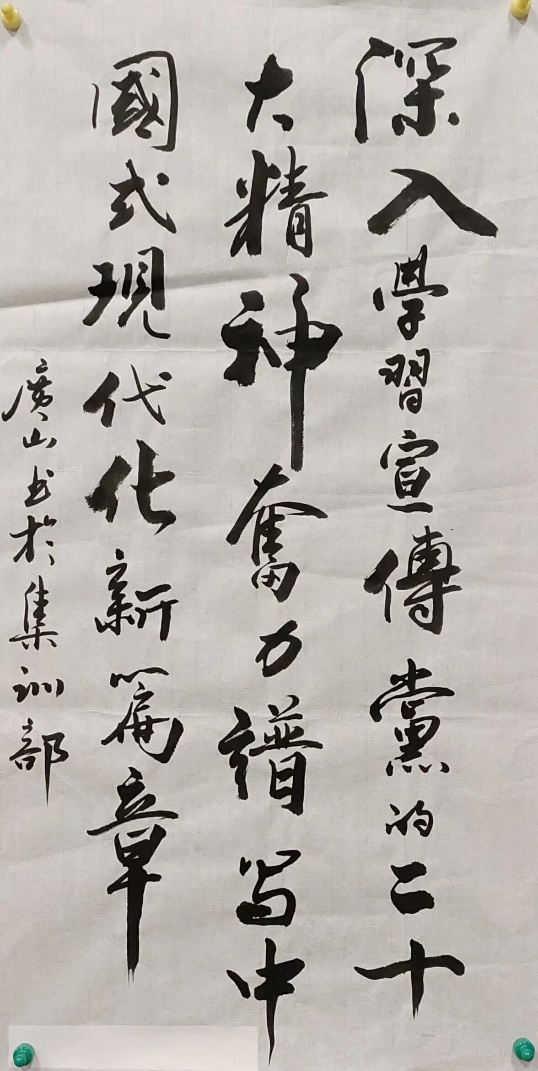 深入學習宣傳黨的二十
大精神奮力譜写中
國式現代化新篇章
廣山书於集訓部